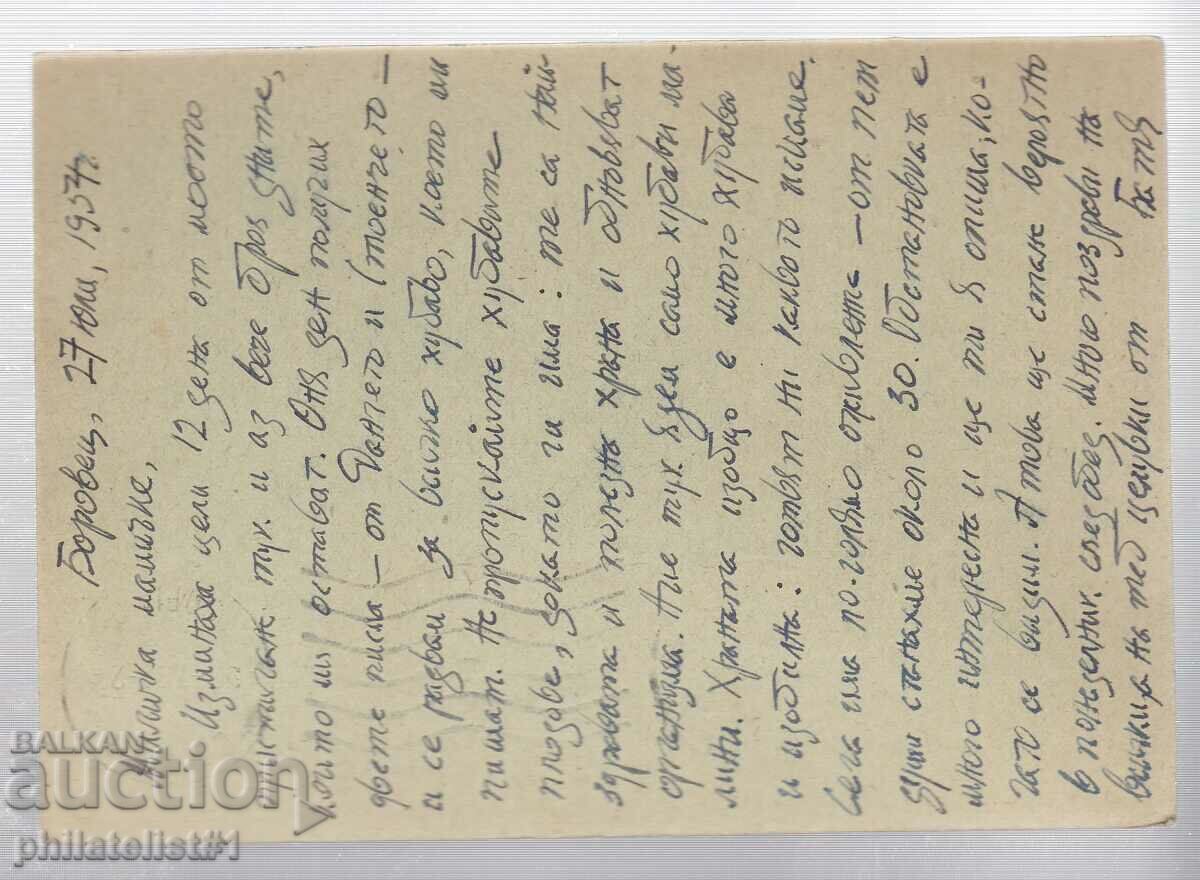 Боровец, 27 юли, 1957г.
Миличка мамичке,
Изминаха цели 12 дена от моето
пристигане тук и аз вече броя дните,
които ми остават. Оня ден получих
двете писма – от Данчето и (твоичето –
и се радвам за всичко хубаво, което ми
пишат. Не пропускайте хубавите
плодове, докато ги има: те са най-
здравата и полезна храна и обновяват
организма. Ние тук ядем само хубави ма-
лини. Храната изобщо е много хубава
и изобилна: готвят ни каквото пишаме.
Сега има по-голямо оживление – от пет
души станахме около 30. Обстановката е
много интересна и ще ти я опиша, ко-
гато се видим. А това ще стане вероятно
в понеделник следобед. Много поздрави на
всички, а на теб целувки от
Батя
BALKAN
auction
philatelist#1